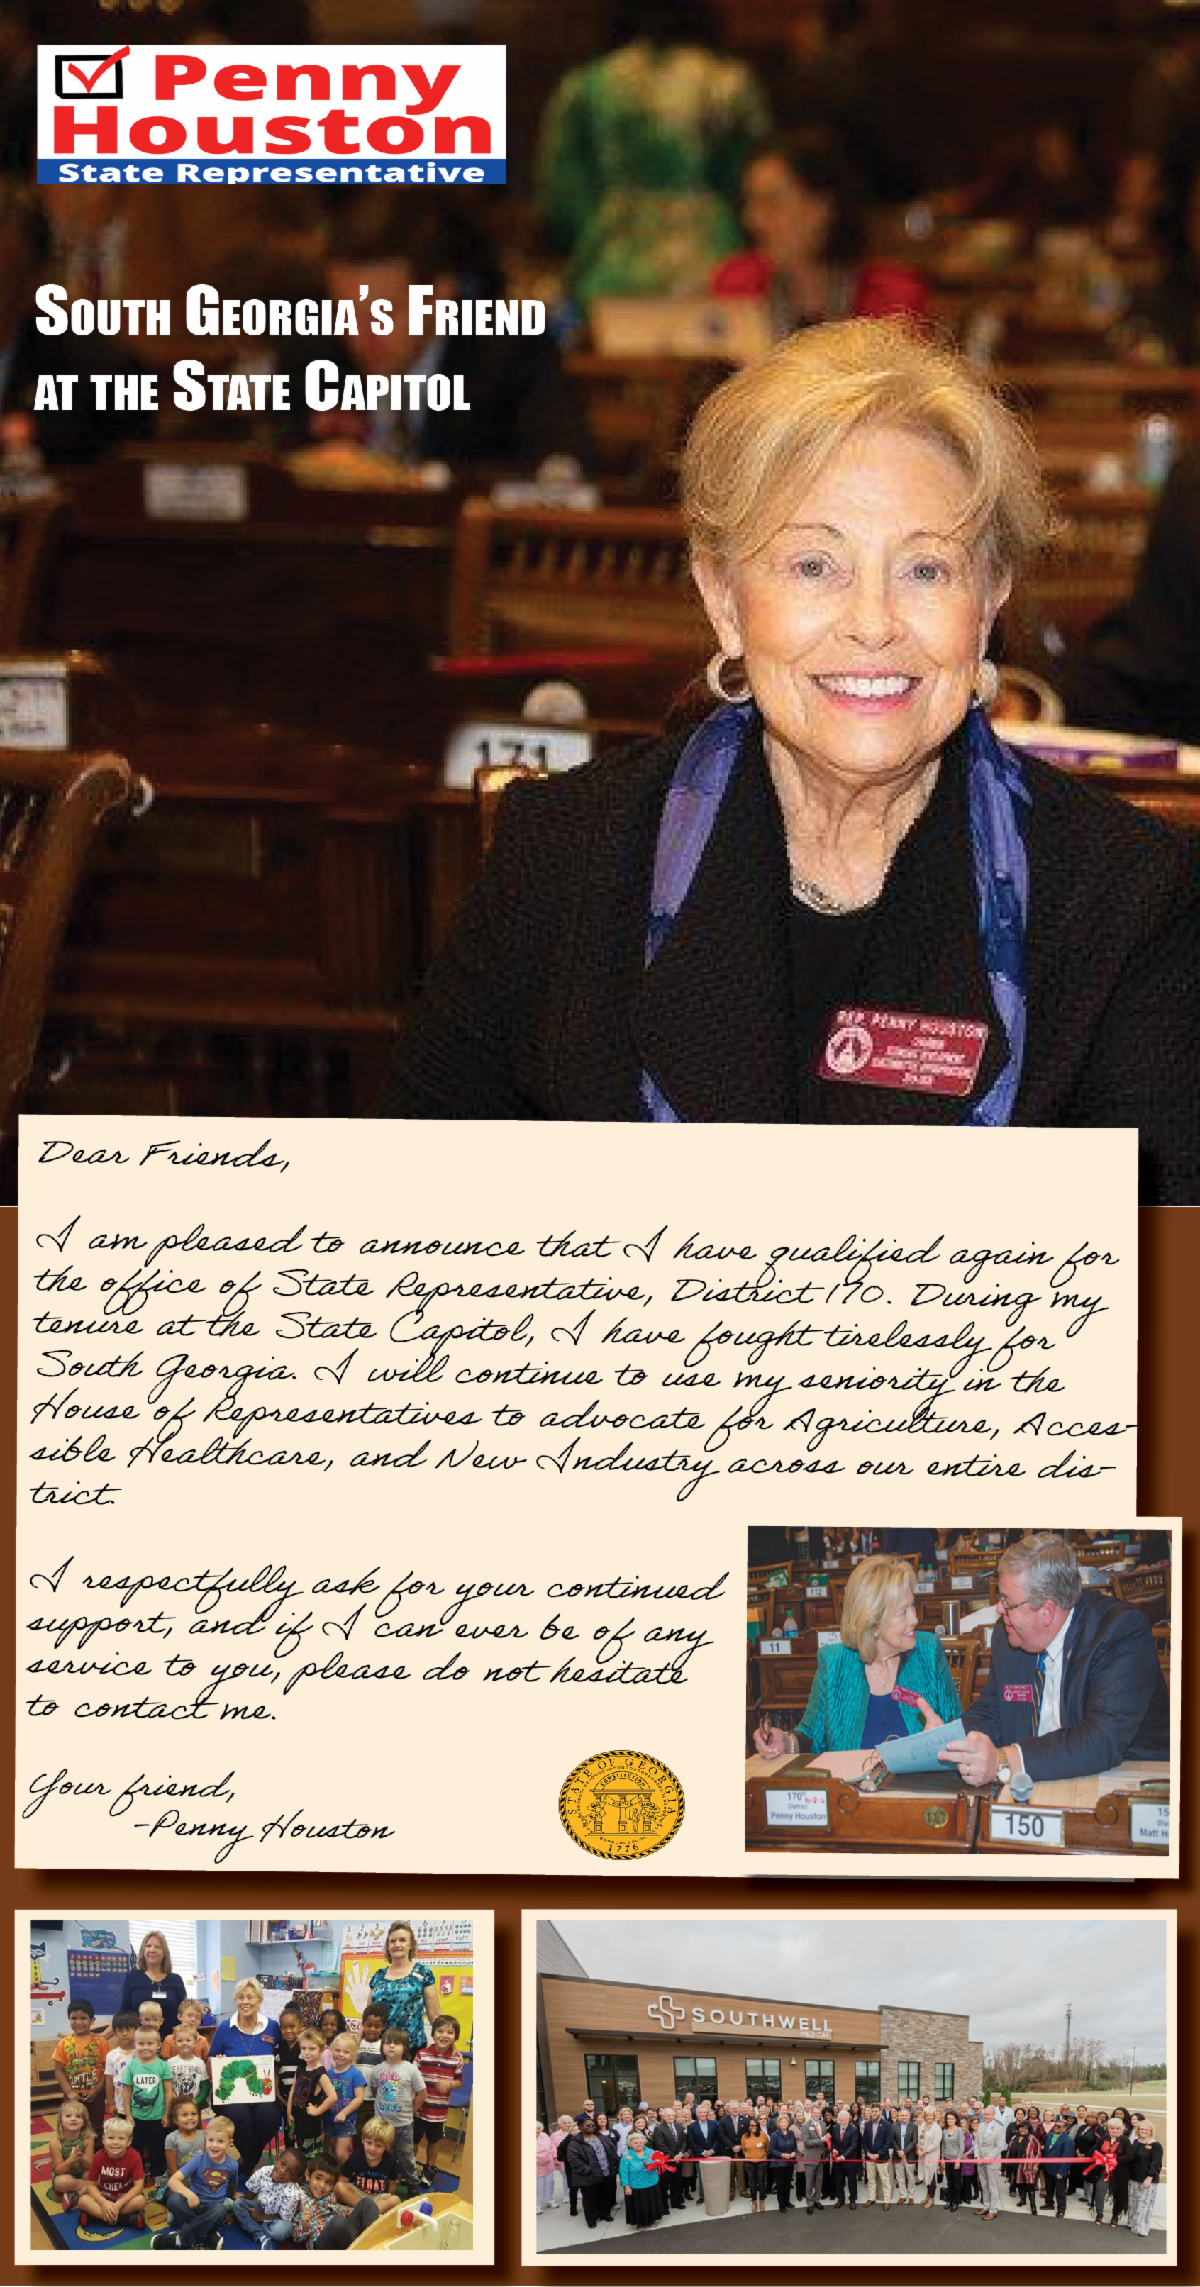 Penny
Houston
State Representative
SOUTH GEORGIA'S FRIEND
AT THE STATE CAPITOL
171
REP. PENNY HOUSTON
Dear Friends,
I am pleased to announce that I have qualified again for
the office of State Representative, District 170. During my
tenure at the State Capitol, I have fought tirelessly for
South Georgia. I will continue to use my seniority in the
House of Representatives to advocate for Agriculture, Acces-
sible Healthcare, and New Industry across our entire dis-
trict.
I respectfully ask for your continued
support, and if I can ever be of any
service to you, please do not hesitate
to contact me.
Your friend,
-Penny Houston
STATE OF GEORGIA
CONSTITUTION
1776
112
63
11
170th
District
Penny Houston
150
15
Matt H
LATER
MOST
FLOAT
SOUTHWELL
MEDICAL